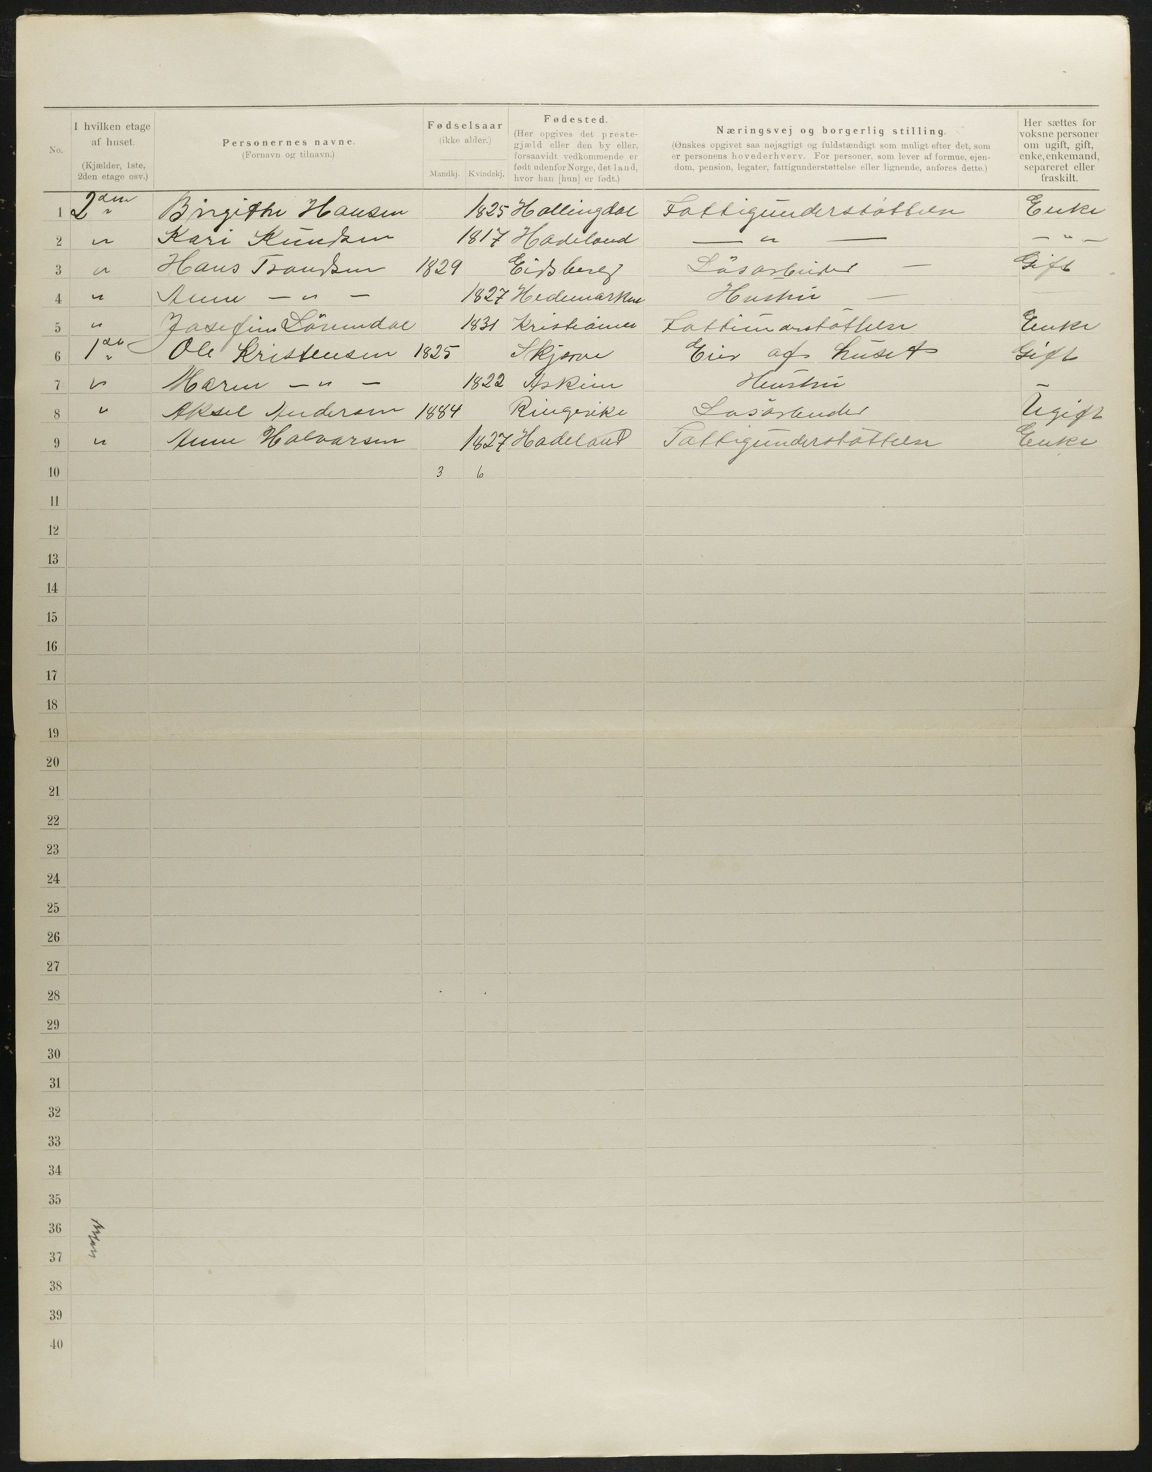 No. | I hvilken etage af huset. (Kjælder, 1ste, 2den etage osv.) | Personernes navne. (Fornavn og tilnavn.) | Fødselsaar (ikke alder.) Mandkj. | Kvindekj. | Fødested. (Her opgives det prestegjæld eller den by eller, forsaavidt vedkommende er født udenfor Norge, det land, hvor han [hun] er født.) | Næringsvej og borgerlig stilling. (Ønskes opgivet saa nøjagtigt og fuldstændigt som muligt efter det, som er personens hovederhverv. For personer, som lever af formue, ejendom, pension, legater, fattigunderstøttelse eller lignende, anføres dette.) | Her sættes for voksne personer om ugift, gift, enke, enkemand, separeret eller fraskilt.
1 2den Birgithe Hansen 1825 Hallingdal Fattigunderstøttelse Enke
2 " Kari Knudsen 1817 Hadeland — " — — " —
3 " Hans Trondsen 1829 Eidsberg Løsarbeider — Gift
4 " Anne — " — 1827 Hedemarken Hustru —
5 " Josefine 1831 Kristiania Enke
6 1ste " Ole Kristensen 1825 Eier af huset Gift
7 " Maren — " — 1822 Askim Hustru "
8 " Aksel Andersen 1884 Ringerike Løsarbeider Ugift
9 " Anne Halvorsen 1827 Hadeland Fattigunderstøttelse Enke
10 3 6
11
12
13
14
15
16
17
18
19
20
21
22
23
24
25
26
27
28
29
30
31
32
33
34
35
36
37
38
39
40